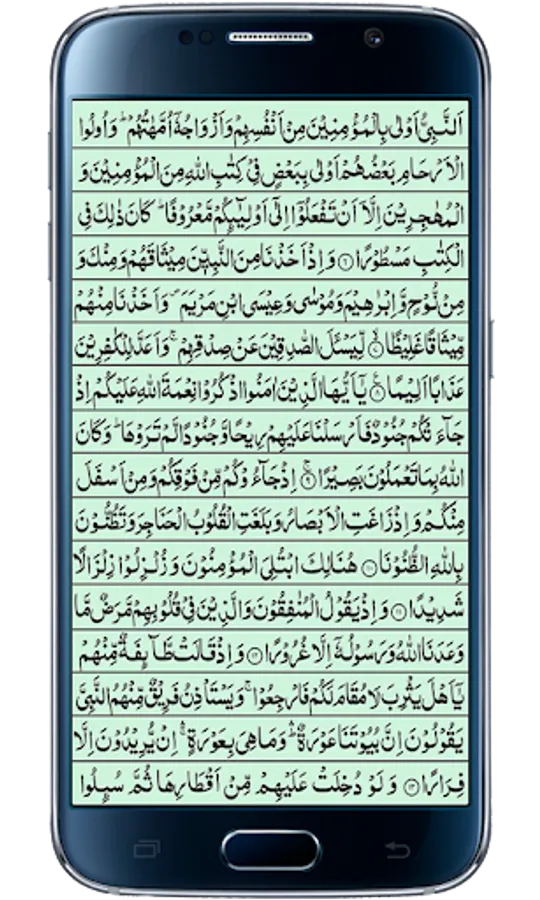 اَلنَّبِىُّ اَوْلٰى بِالْمُؤْمِنِيْنَ مِنْ اَنْفُسِهِمْ وَاَزْوَاجُهٗۤ اُمَّهٰتُهُمْ ؕ وَاُولُوا
الْاَرْحَامِ بَعْضُهُمْ اَوْلٰى بِبَعْضٍ فِىْ كِتٰبِ اللّٰهِ مِنَ الْمُؤْمِنِيْنَ وَ
الْمُهٰجِرِيْنَ اِلَّاۤ اَنْ تَفْعَلُوْۤا اِلٰٓى اَوْلِيٰٓٮِٕكُمْ مَّعْرُوْفًا ؕ كَانَ ذٰلِكَ فِى
الْكِتٰبِ مَسْطُوْرًا ۝۶ وَاِذْ اَخَذْنَا مِنَ النَّبِيّٖنَ مِيْثَاقَهُمْ وَمِنْكَ وَ
مِنْ نُّوْحٍ وَّاِبْرٰهِيْمَ وَمُوْسٰى وَعِيْسَى ابْنِ مَرْيَمَ ۪ وَاَخَذْنَا مِنْهُمْ
مِّيْثَاقًا غَلِيْظًا ۝۷ لِّيَسْئَلَ الصّٰدِقِيْنَ عَنْ صِدْقِهِمْ ۚ وَاَعَدَّ لِلْكٰفِرِيْنَ
عَذَابًا اَلِيْمًا ۝۸ يٰۤاَيُّهَا الَّذِيْنَ اٰمَنُوا اذْكُرُوْا نِعْمَةَ اللّٰهِ عَلَيْكُمْ اِذْ
جَآءَتْكُمْ جُنُوْدٌ فَاَرْسَلْنَا عَلَيْهِمْ رِيْحًا وَّجُنُوْدًا لَّمْ تَرَوْهَا ؕ وَكَانَ
اللّٰهُ بِمَا تَعْمَلُوْنَ بَصِيْرًا ۝۹ اِذْ جَآءُوْكُمْ مِّنْ فَوْقِكُمْ وَمِنْ اَسْفَلَ
مِنْكُمْ وَاِذْ زَاغَتِ الْاَبْصَارُ وَبَلَغَتِ الْقُلُوْبُ الْحَنَاجِرَ وَتَظُنُّوْنَ
بِاللّٰهِ الظُّنُوْنَا ۝۱۰ هُنَالِكَ ابْتُلِىَ الْمُؤْمِنُوْنَ وَزُلْزِلُوْا زِلْزَالًا
شَدِيْدًا ۝۱۱ وَاِذْ يَقُوْلُ الْمُنٰفِقُوْنَ وَالَّذِيْنَ فِىْ قُلُوْبِهِمْ مَّرَضٌ مَّا
وَعَدَنَا اللّٰهُ وَرَسُوْلُهٗۤ اِلَّا غُرُوْرًا ۝۱۲ وَاِذْ قَالَتْ طَّآٮِٕفَةٌ مِّنْهُمْ
يٰۤاَهْلَ يَثْرِبَ لَا مُقَامَ لَكُمْ فَارْجِعُوْا ۚ وَيَسْتَاْذِنُ فَرِيْقٌ مِّنْهُمُ النَّبِىَّ
يَقُوْلُوْنَ اِنَّ بُيُوْتَنَا عَوْرَةٌ ؕ وَمَا هِىَ بِعَوْرَةٍ ۚ اِنْ يُّرِيْدُوْنَ اِلَّا
فِرَارًا ۝۱۳ وَلَوْ دُخِلَتْ عَلَيْهِمْ مِّنْ اَقْطَارِهَا ثُمَّ سُٮِٕلُوا